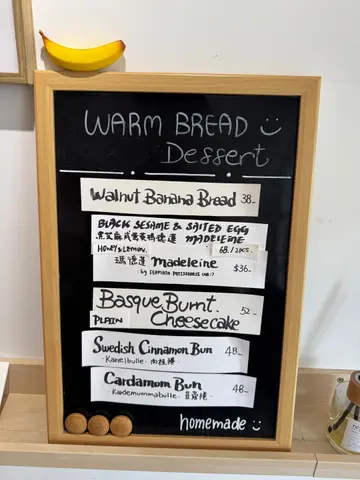 WARM BREAD
Dessert
Walnut Banana Bread 38-
BLACK SESAME & SALTED EGG
MADELEINE
HONEY & LEMON. 68./2PCS.
瑪德蓮 madeleine
$36-
Basque Burnt
PLAIN Cheesecake 52-
Swedish Cinnamon Bun 48-
· Kanelbulle · 肉桂捲
Cardamom Bun 48-
· Kardemummabulle · 荳蔻捲
homemade